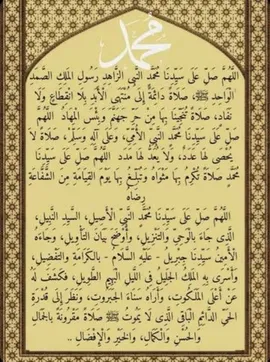 محمد
اللَّهُمَّ صَلِّ عَلَى سَيِّدِنَا مُحَمَّدٍ النَّبِيِّ الزَّاهِدِ رَسُولِ المَلِكِ الصَّمَدِ
الوَاحِدِ ﷺ، صَلَاةً دَائِمَةً إِلَى مُنْتَهَى الأَبَدِ بِلَا انْقِطَاعٍ وَلَا
نَفَادٍ، صَلَاةً تُنْجِينَا بِهَا مِنْ حَرِّ جَهَنَّمَ وَبِئْسَ المِهَادُ اللَّهُمَّ
صَلِّ عَلَى سَيِّدِنَا مُحَمَّدٍ النَّبِيِّ الأُمِّيِّ، وَعَلَى آلِهِ وَسَلِّمْ، صَلَاةً لَا
يُحْصَى لَهَا عَدَدٌ، وَلَا يُعَدُّ لَهَا مدد اللَّهُمَّ صَلِّ عَلَى سَيِّدِنَا
مُحَمَّدٍ صَلَاةً تُكْرِمُ بِهَا مَثْوَاهُ وَتُبَلِّغُ بِهَا يَوْمَ القِيَامَةِ مِنَ الشَّفَاعَةِ
رِضَاهُ
اللَّهُمَّ صَلِّ عَلَى سَيِّدِنَا مُحَمَّدٍ النَّبِيِّ الأَصِيلِ، السَّيِّدِ النَّبِيلِ،
الَّذِي جَاءَ بِالوَحْيِ وَالتَّنْزِيلِ، وَأَوْضَحَ بَيَانَ التَّأْوِيلِ، وَجَاءَهُ
الأَمِينُ سَيِّدُنَا جِبْرِيلُ - عَلَيْهِ السَّلَامُ - بِالكَرَامَةِ وَالتَّفْضِيلِ،
وَأَسْرَى بِهِ المَلِكُ الجَلِيلُ فِي اللَّيْلِ البَهِيمِ الطَّوِيلِ، فَكَشَفَ لَهُ
عَنْ أَعْلَى المَلَكُوتِ، وَأَرَاهُ سَنَاءَ الجَبَرُوتِ، وَنَظَرَ إِلَى قُدْرَةِ
الحَيِّ الدَّائِمِ البَاقِي الَّذِي لَا يَمُوتُ ﷺ صَلَاةً مَقْرُونَةً بِالجَمَالِ
وَالحُسْنِ وَالكَمَالِ، وَالخَيْرِ وَالإِفْضَالِ ..